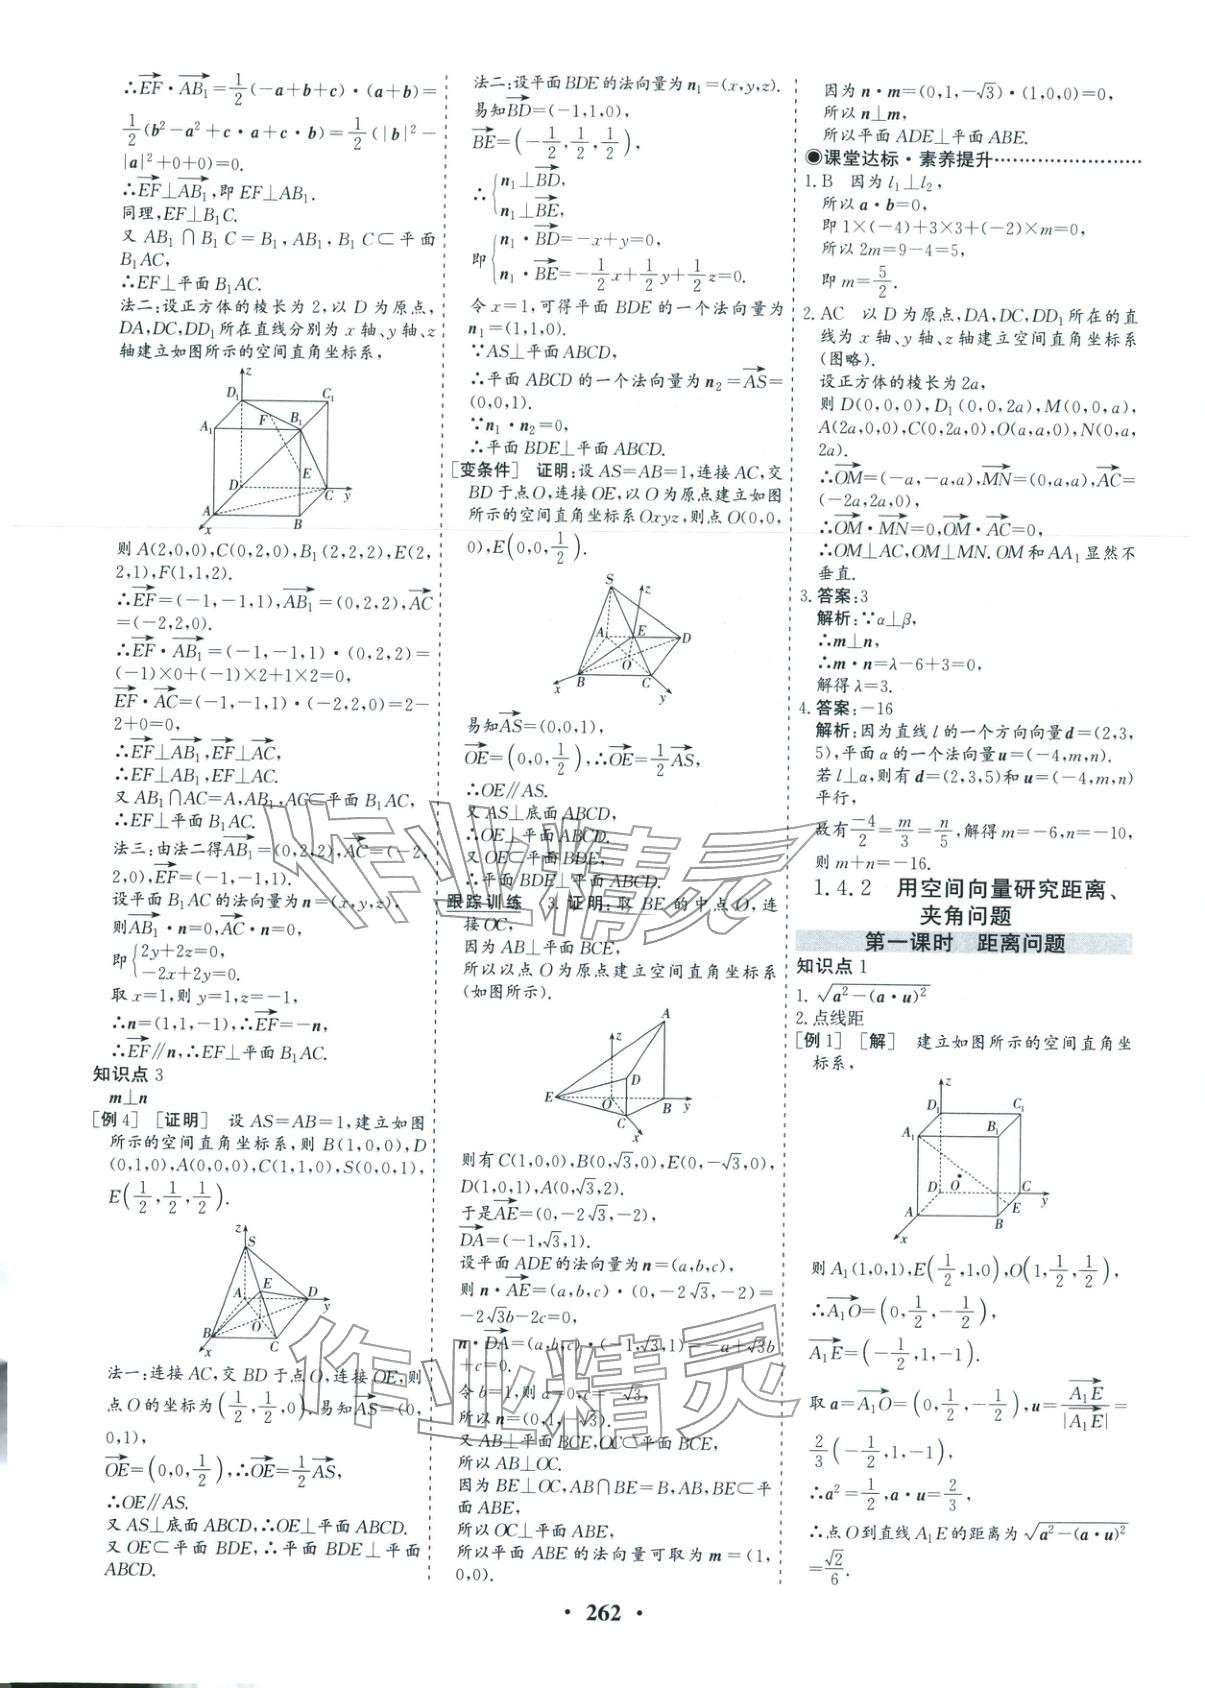 ∴EF·AB₁=1/2(-a+b+c)·(a+b)=
1/2(b²-a²+c·a+c·b)=1/2(|b|²-
|a|²+0+0)=0.
∴EF⊥AB₁,即 EF⊥AB₁.
同理,EF⊥B₁C.
又 AB₁∩B₁C=B₁,AB₁,B₁C⊂平面
B₁AC,
∴EF⊥平面 B₁AC.
法二:设正方体的棱长为 2,以 D 为原点,
DA,DC,DD₁所在直线分别为 x 轴、y 轴、z
轴建立如图所示的空间直角坐标系,
z
D₁ C₁
F B₁
A₁
E
D C y
A B
x
则 A(2,0,0),C(0,2,0),B₁(2,2,2),E(2,
2,1),F(1,1,2).
∴EF=(-1,-1,1),AB₁=(0,2,2),AC
=(-2,2,0).
∴EF·AB₁=(-1,-1,1)·(0,2,2)=
(-1)×0+(-1)×2+1×2=0,
EF·AC=(-1,-1,1)·(-2,2,0)=2-
2+0=0,
∴EF⊥AB₁,EF⊥AC,
∴EF⊥AB₁,EF⊥AC.
又 AB₁∩AC=A,AB₁,AC⊂平面 B₁AC,
∴EF⊥平面 B₁AC.
法三:由法二得AB₁=(0,2,2),AC=(-2,
2,0),EF=(-1,-1,1).
设平面 B₁AC 的法向量为 n=(x,y,z),
则AB₁·n=0,AC·n=0,
即{2y+2z=0,
-2x+2y=0.
取 x=1,则 y=1,z=-1,
∴n=(1,1,-1),∴EF=-n,
∴EF∥n,∴EF⊥平面 B₁AC.
知识点 3
m⊥n
[例 4] [证明] 设 AS=AB=1,建立如图
所示的空间直角坐标系,则 B(1,0,0),D
(0,1,0),A(0,0,0),C(1,1,0),S(0,0,1),
E(1/2,1/2,1/2).
z
S
E
A D y
O
B C
x
法一:连接 AC,交 BD 于点 O,连接 OE,则
点 O 的坐标为(1/2,1/2,0).易知AS=(0,
0,1),
OE=(0,0,1/2),∴OE=1/2AS,
∴OE∥AS.
又 AS⊥底面 ABCD,∴OE⊥平面 ABCD.
又 OE⊂平面 BDE,∴平面 BDE⊥平面
ABCD.
法二:设平面 BDE 的法向量为 n₁=(x,y,z).
易知BD=(-1,1,0),
BE=(-1/2,1/2,1/2),
∴{n₁⊥BD,
n₁⊥BE,
即{n₁·BD=-x+y=0,
n₁·BE=-1/2x+1/2y+1/2z=0.
令 x=1,可得平面 BDE 的一个法向量为
n₁=(1,1,0).
∵AS⊥平面 ABCD,
∴平面 ABCD 的一个法向量为 n₂=AS=
(0,0,1).
∵n₁·n₂=0,
∴平面 BDE⊥平面 ABCD.
[变条件] 证明:设 AS=AB=1,连接 AC,交
BD 于点 O,连接 OE,以 O 为原点建立如图
所示的空间直角坐标系 Oxyz,则点 O(0,0,
0),E(0,0,1/2).
S z
A E D
O
x B C
y
易知AS=(0,0,1),
OE=(0,0,1/2),∴OE=1/2AS,
∴OE∥AS.
又 AS⊥底面 ABCD,
∴OE⊥平面 ABCD.
又 OE⊂平面 BDE,
∴平面 BDE⊥平面 ABCD.
跟踪训练 3. 证明:取 BE 的中点 O,连
接 OC,
因为 AB⊥平面 BCE,
所以以点 O 为原点建立空间直角坐标系
(如图所示).
z A
D
E O B y
C
x
则有 C(1,0,0),B(0,√3,0),E(0,-√3,0),
D(1,0,1),A(0,√3,2).
于是AE=(0,-2√3,-2),
DA=(-1,√3,1).
设平面 ADE 的法向量为 n=(a,b,c),
则 n·AE=(a,b,c)·(0,-2√3,-2)=
-2√3b-2c=0,
n·DA=(a,b,c)·(-1,√3,1)=-a+√3b
+c=0.
令 b=1,则 a=0,c=-√3,
所以 n=(0,1,-√3).
又 AB⊥平面 BCE,OC⊂平面 BCE,
所以 AB⊥OC.
因为 BE⊥OC,AB∩BE=B,AB,BE⊂平
面 ABE,
所以 OC⊥平面 ABE,
所以平面 ABE 的法向量可取为 m=(1,
0,0).
因为 n·m=(0,1,-√3)·(1,0,0)=0,
所以 n⊥m,
所以平面 ADE⊥平面 ABE.
课堂达标·素养提升
1. B 因为 l₁⊥l₂,
所以 a·b=0,
即 1×(-4)+3×3+(-2)×m=0,
所以 2m=9-4=5,
即 m=5/2.
2. AC 以 D 为原点,DA,DC,DD₁所在的直
线为 x 轴、y 轴、z 轴建立空间直角坐标系
(图略).
设正方体的棱长为 2a,
则 D(0,0,0),D₁(0,0,2a),M(0,0,a),
A(2a,0,0),C(0,2a,0),O(a,a,0),N(0,a,
2a).
∴OM=(-a,-a,a),MN=(0,a,a),AC=
(-2a,2a,0),
∴OM·MN=0,OM·AC=0,
∴OM⊥AC,OM⊥MN.OM 和 AA₁ 显然不
垂直.
3. 答案:3
解析:∵α⊥β,
∴m⊥n,
∴m·n=λ-6+3=0,
解得 λ=3.
4. 答案:-16
解析:因为直线 l 的一个方向向量 d=(2,3,
5),平面 α 的一个法向量 u=(-4,m,n).
若 l⊥α,则有 d=(2,3,5)和 u=(-4,m,n)
平行,
故有 -4/2=m/3=n/5,解得 m=-6,n=-10,
则 m+n=-16.
1.4.2 用空间向量研究距离、
夹角问题
第一课时 距离问题
知识点 1
1. √a²-(a·u)²
2. 点线距
[例 1] [解] 建立如图所示的空间直角坐
标系,
z
D₁ C₁
A₁ B₁
O
D C
E y
A B
x
则 A₁(1,0,1),E(1/2,1,0),O(1,1/2,1/2),
∴A₁O=(0,1/2,-1/2),
A₁E=(-1/2,1,-1).
取 a=A₁O=(0,1/2,-1/2),u=A₁E/|A₁E|=
2/3(-1/2,1,-1).
∴a²=1/2,a·u=2/3,
∴点 O 到直线 A₁E 的距离为√a²-(a·u)²
=√2/6.
· 262 ·
作业精灵
作业精灵